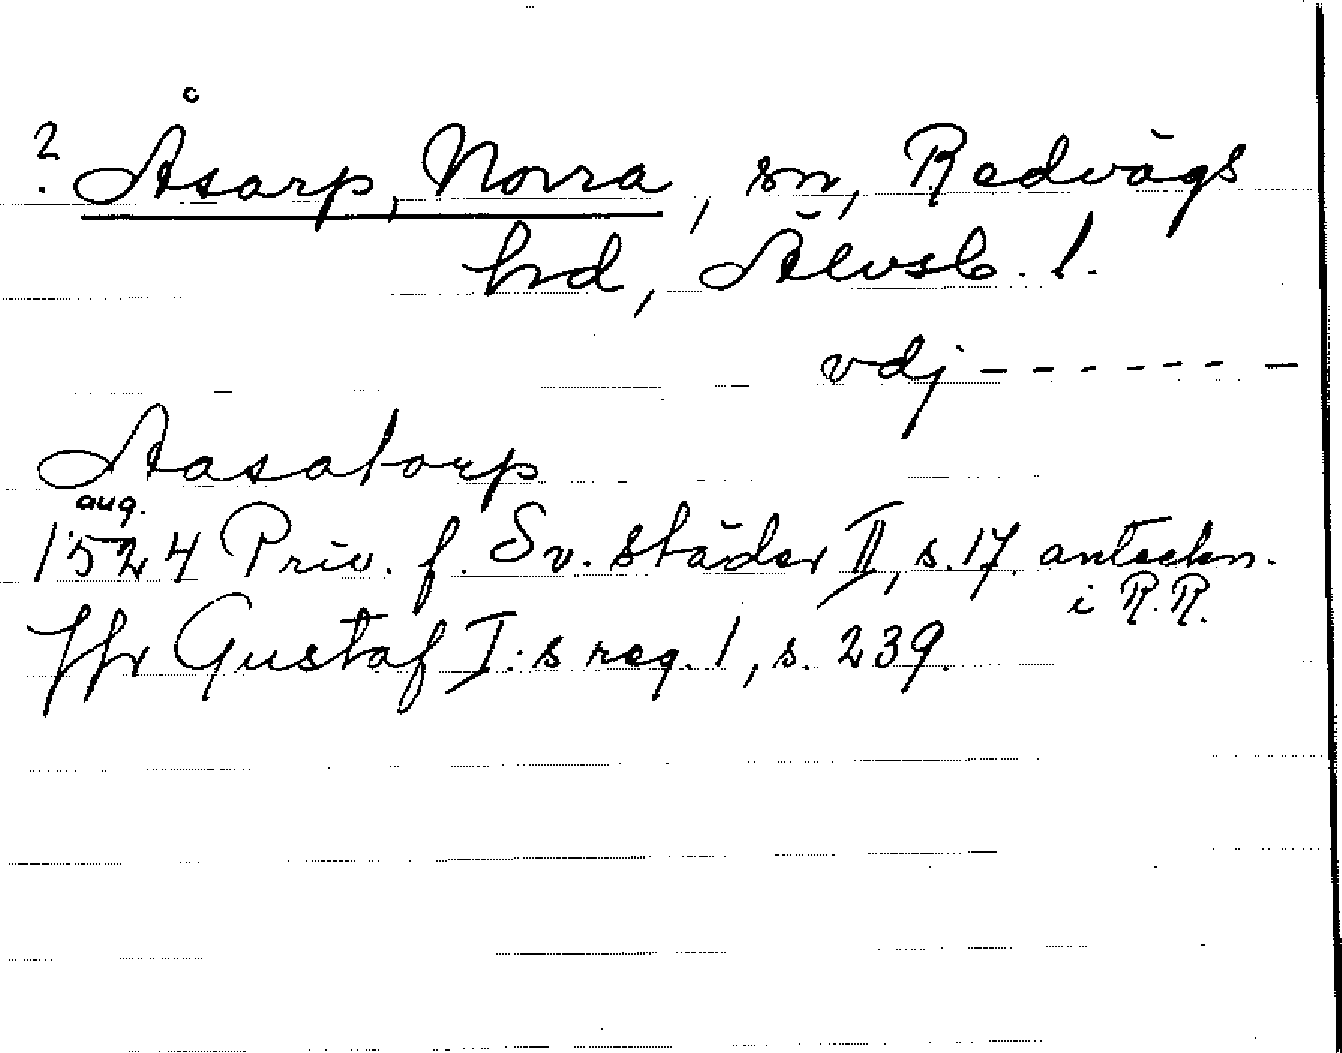 ? Åsarp, Norra, sn, Redvägs
hd, Älvsb. l.
vdj - - - - - - -
Aasatorp
aug.
1524 Priv. f. Sv. städer II, s. 17. anteckn.
i R.R.
Jfr Gustaf I:s reg. 1, s. 239.